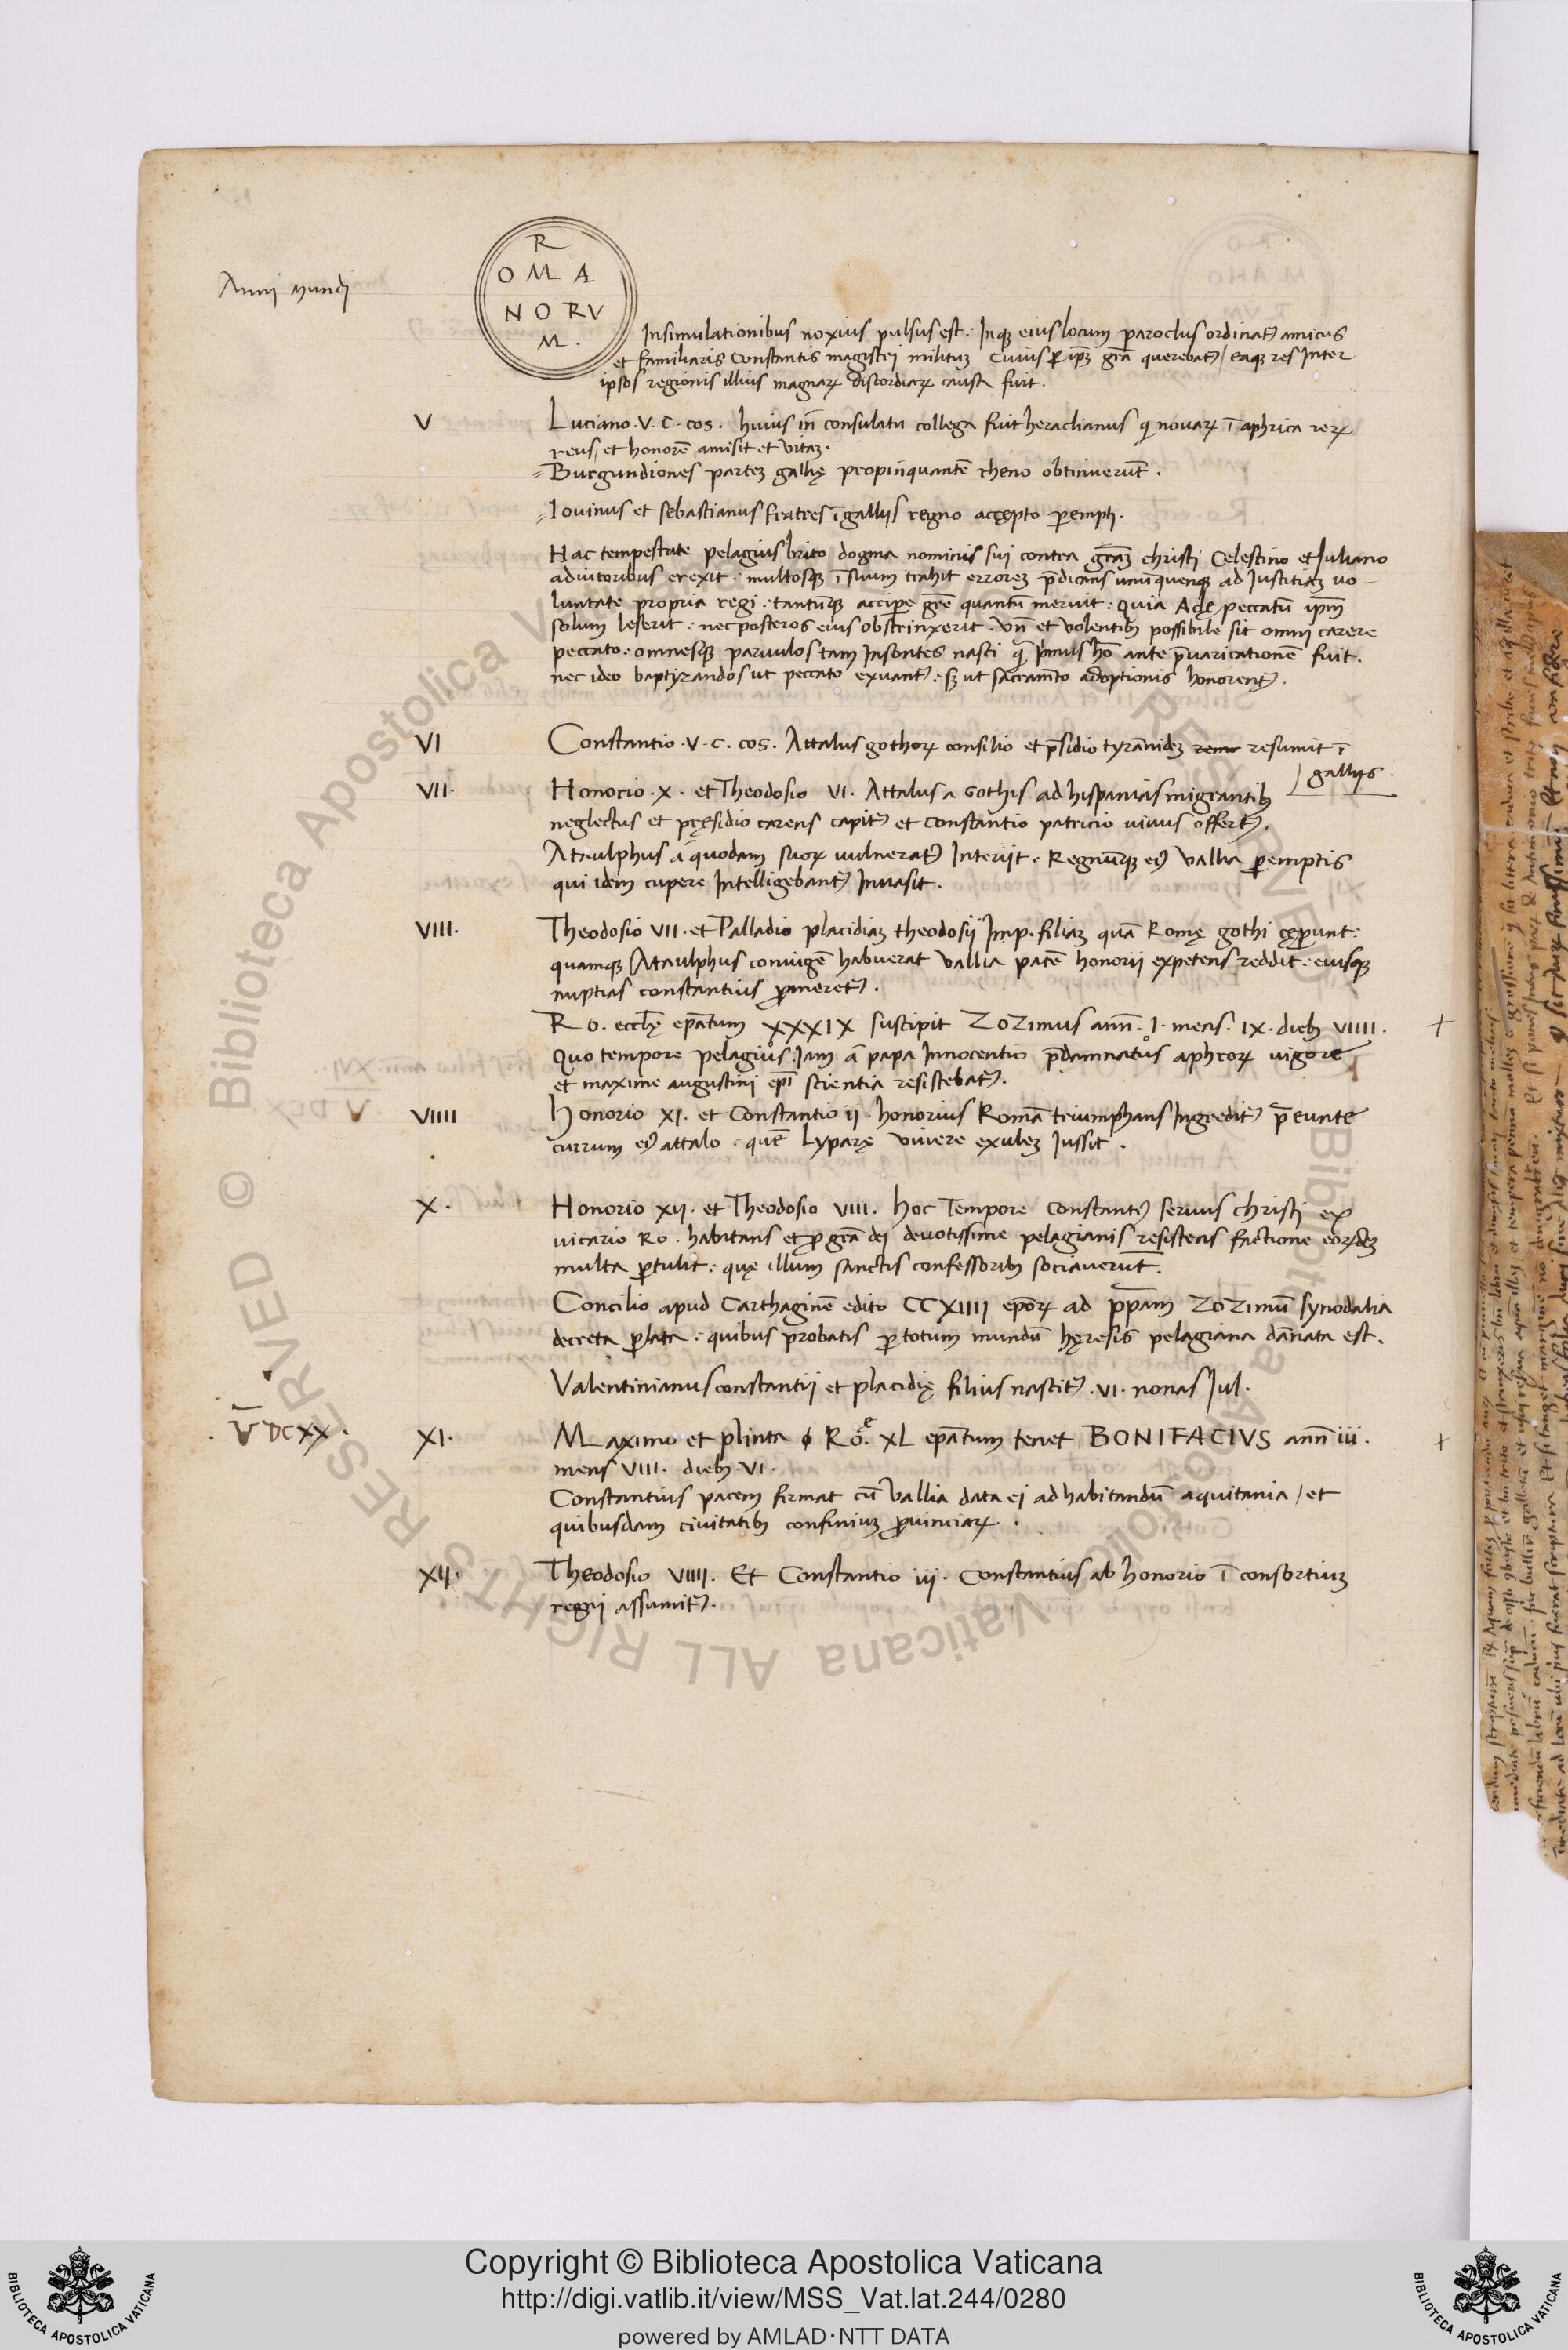 Anni Mundi
R
OMA
NORV
M.
Insimulationibus noxius pulsus est. Inq; eius locum paroclus ordinat᾽ amicus
et familiaris Constantis magistri milituʒ Cuius ꝑ ip̅ʒ gr̅a querebat᾽ / eaq; res Inter
ipsos regionis illius magnaꝝ discordiaꝝ causa fuit.
V Luciano. V. C. cos. huius in̅ consulatu collega fuit heraclianus q̇ novaꝝ i̅ aphrica reꝝ
reus / et honore̅ amisit et vitaʒ.
Burgundiones parteʒ gallię propinquante̅ rheno obtinueru̅t.
Iovinus et sebastianus fratres i̅ gallijs regno accępto ꝑempti.
Hac tempestate pelagius brito dogma nominis sui contra gr̅aʒ christi Celestino et Juliano
adiutoribus erexit: multosq; i̅ suum trahit erroreʒ p̅dicans unu̅quenq; ad Justitiaʒ vo-
luntate propria regi: tantu̅q; accipe gr̅e quantu̅ meruit: Quia Adę peccatu̅ ip̅m
solum leserit: nec posteros eius obstrinxerit. Vn̅ et volentib; possibile sit omni carere
peccato: omnesq; parvulos tam Insontes nasci q̅ p̅mus ho̅ ante p̅varicatione̅ fuit.
nec ideo baptiʒandos ut peccato exuant᾽: sʒ ut sacrame̅to adoptionis honorent᾽.
VI Constantio. V. C. cos. Attalus gothoꝝ consilio et p̅sidio tyra̅nideʒ resumit i̅
gallijs.
VII. Honorio. X. et Theodosio VI. Attalus a Gothis ad hispanias migrantib;
neglectus et pręsidio carens capit᾽ et Constantio patricio vivus offert᾽.
Ataulphus a quodam suoꝝ vulnerat᾽ Interijt. Regnu̅q; ei᾽ Vallia ꝑemptis
qui idem cupere Intelligebant᾽ Invasit.
VIII. Theodosio VII. et Palladio placidiaʒ theodosij Imp. filiaʒ qua̅ Romę gothi cęꝑunt:
quamq; Ataulphus coniuge̅ habuerat Vallia pace̅ honorii expetens reddit: eiusq;
nuptias constantius ꝓmeret᾽.
Ro. eccl̅ę ep̅atum XXXIX suscipit ZOZIMUS ann̅. I. mens. IX. dieb; VIIII. +
Quo tempore pelagius Iam a̅ papa Innocentio p̅damnatus aphroꝝ vigore
et maxime augustini ep̅i scientia resistebat᾽.
VIIII Honorio XI. et Constantio ii. honorius Roma̅ triumphans Ingredit᾽ p̅eunte
currum ei᾽ attalo: que̅ Lyparę vivere exuleʒ Jussit.
X. Honorio XII. et Theodosio VIII. hoc Tempore Constanti᾽ servus christi ex
vicario Ro. habitans et ꝓ gr̅a dei devotissime pelagianis resistens factione eoꝝdeʒ
multa ꝑtulit: quę illum sanctis confessorib; sociaveru̅t.
Concilio apud Carthagine̅ edito CCXIIII ep̅oꝝ ad p̅pam ZOZIMU̅ synodalia
decreta ꝑlata: quibus probatis ꝑ totum mundu̅ hęresis pelagiana da̅nata est.
Valentinianus constantii et placidię filius nascit᾽. VI. nonas Jul.
. V̅ DCXX. XI. Maximo et plinta Ro. XL ep̅atum tenet BONIFACIVS ann̅ iii. +
mens VIII. dieb; VI.
Constantius pacem firmat cu̅ Vallia data ei ad habitandu̅ aquitania / et
quibusdam civitatib; confiniuʒ ꝓvinciaꝝ.
XII. Theodosio VIIII. Et Constantio iii. Constantius ab honorio i̅ consortiuʒ
regni assumit᾽.
Biblioteca Apostolica Vaticana ALL RIGHTS RESERVED ©
Copyright © Biblioteca Apostolica Vaticana
http://digi.vatlib.it/view/MSS_Vat.lat.244/0280
powered by AMLAD·NTT DATA
BIBLIOTECA APOSTOLICA VATICANA
BIBLIOTECA APOSTOLICA VATICANA